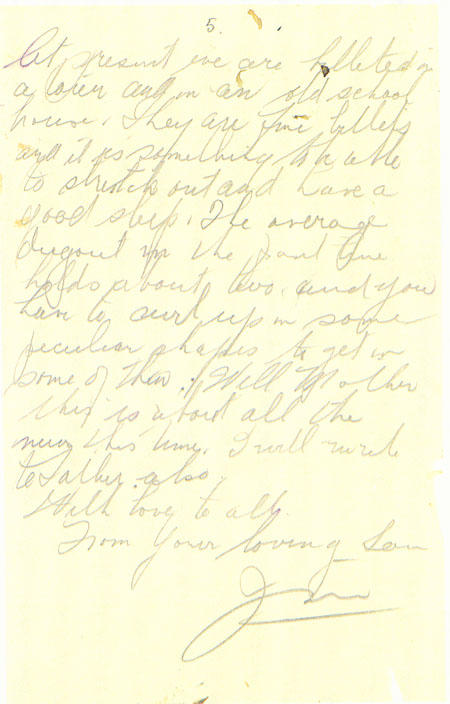 5.
At present we are billeted in
a town and in an old school
house. They are fine billets
and it is something to be able
to stretch out and have a
good sleep. The average
dugout in the front line
holds about two and you
have to curl up in some
peculiar shapes to get in
some of them. Well Mother
this is about all the
news this time. I will write
to Father also.
With love to all.
From Your loving Son